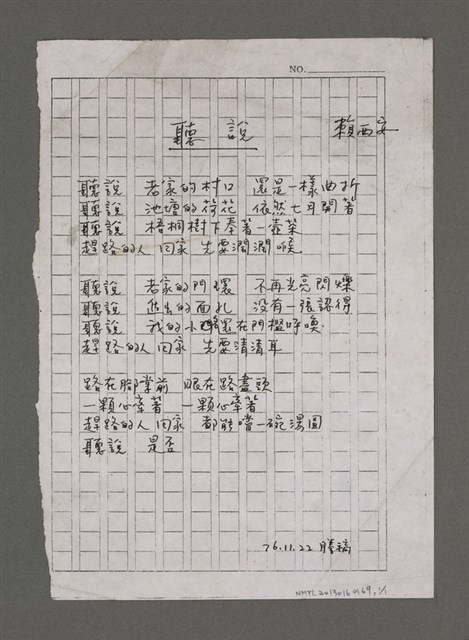 NO.
聽說
賴西安
聽說 老家的村口 還是一樣曲折
聽說 池塘的荷花 依然七月開著
聽說 梧桐樹下奉著一壺茶
趕路的人 回家 先要潤潤喉
聽說 老家的門環 不再光亮閃爍
聽說 進出的面孔 沒有一張認得
聽說 我的小名還在門檻呼喚
趕路的人 回家 先要清清耳
路在腳掌前 眼在路盡頭
一顆心牽著 一顆心牽著
趕路的人 回家 都能嚐一碗湯圓
聽說 是否
76.11.22 謄稿
NMTL20130160169, 1/1